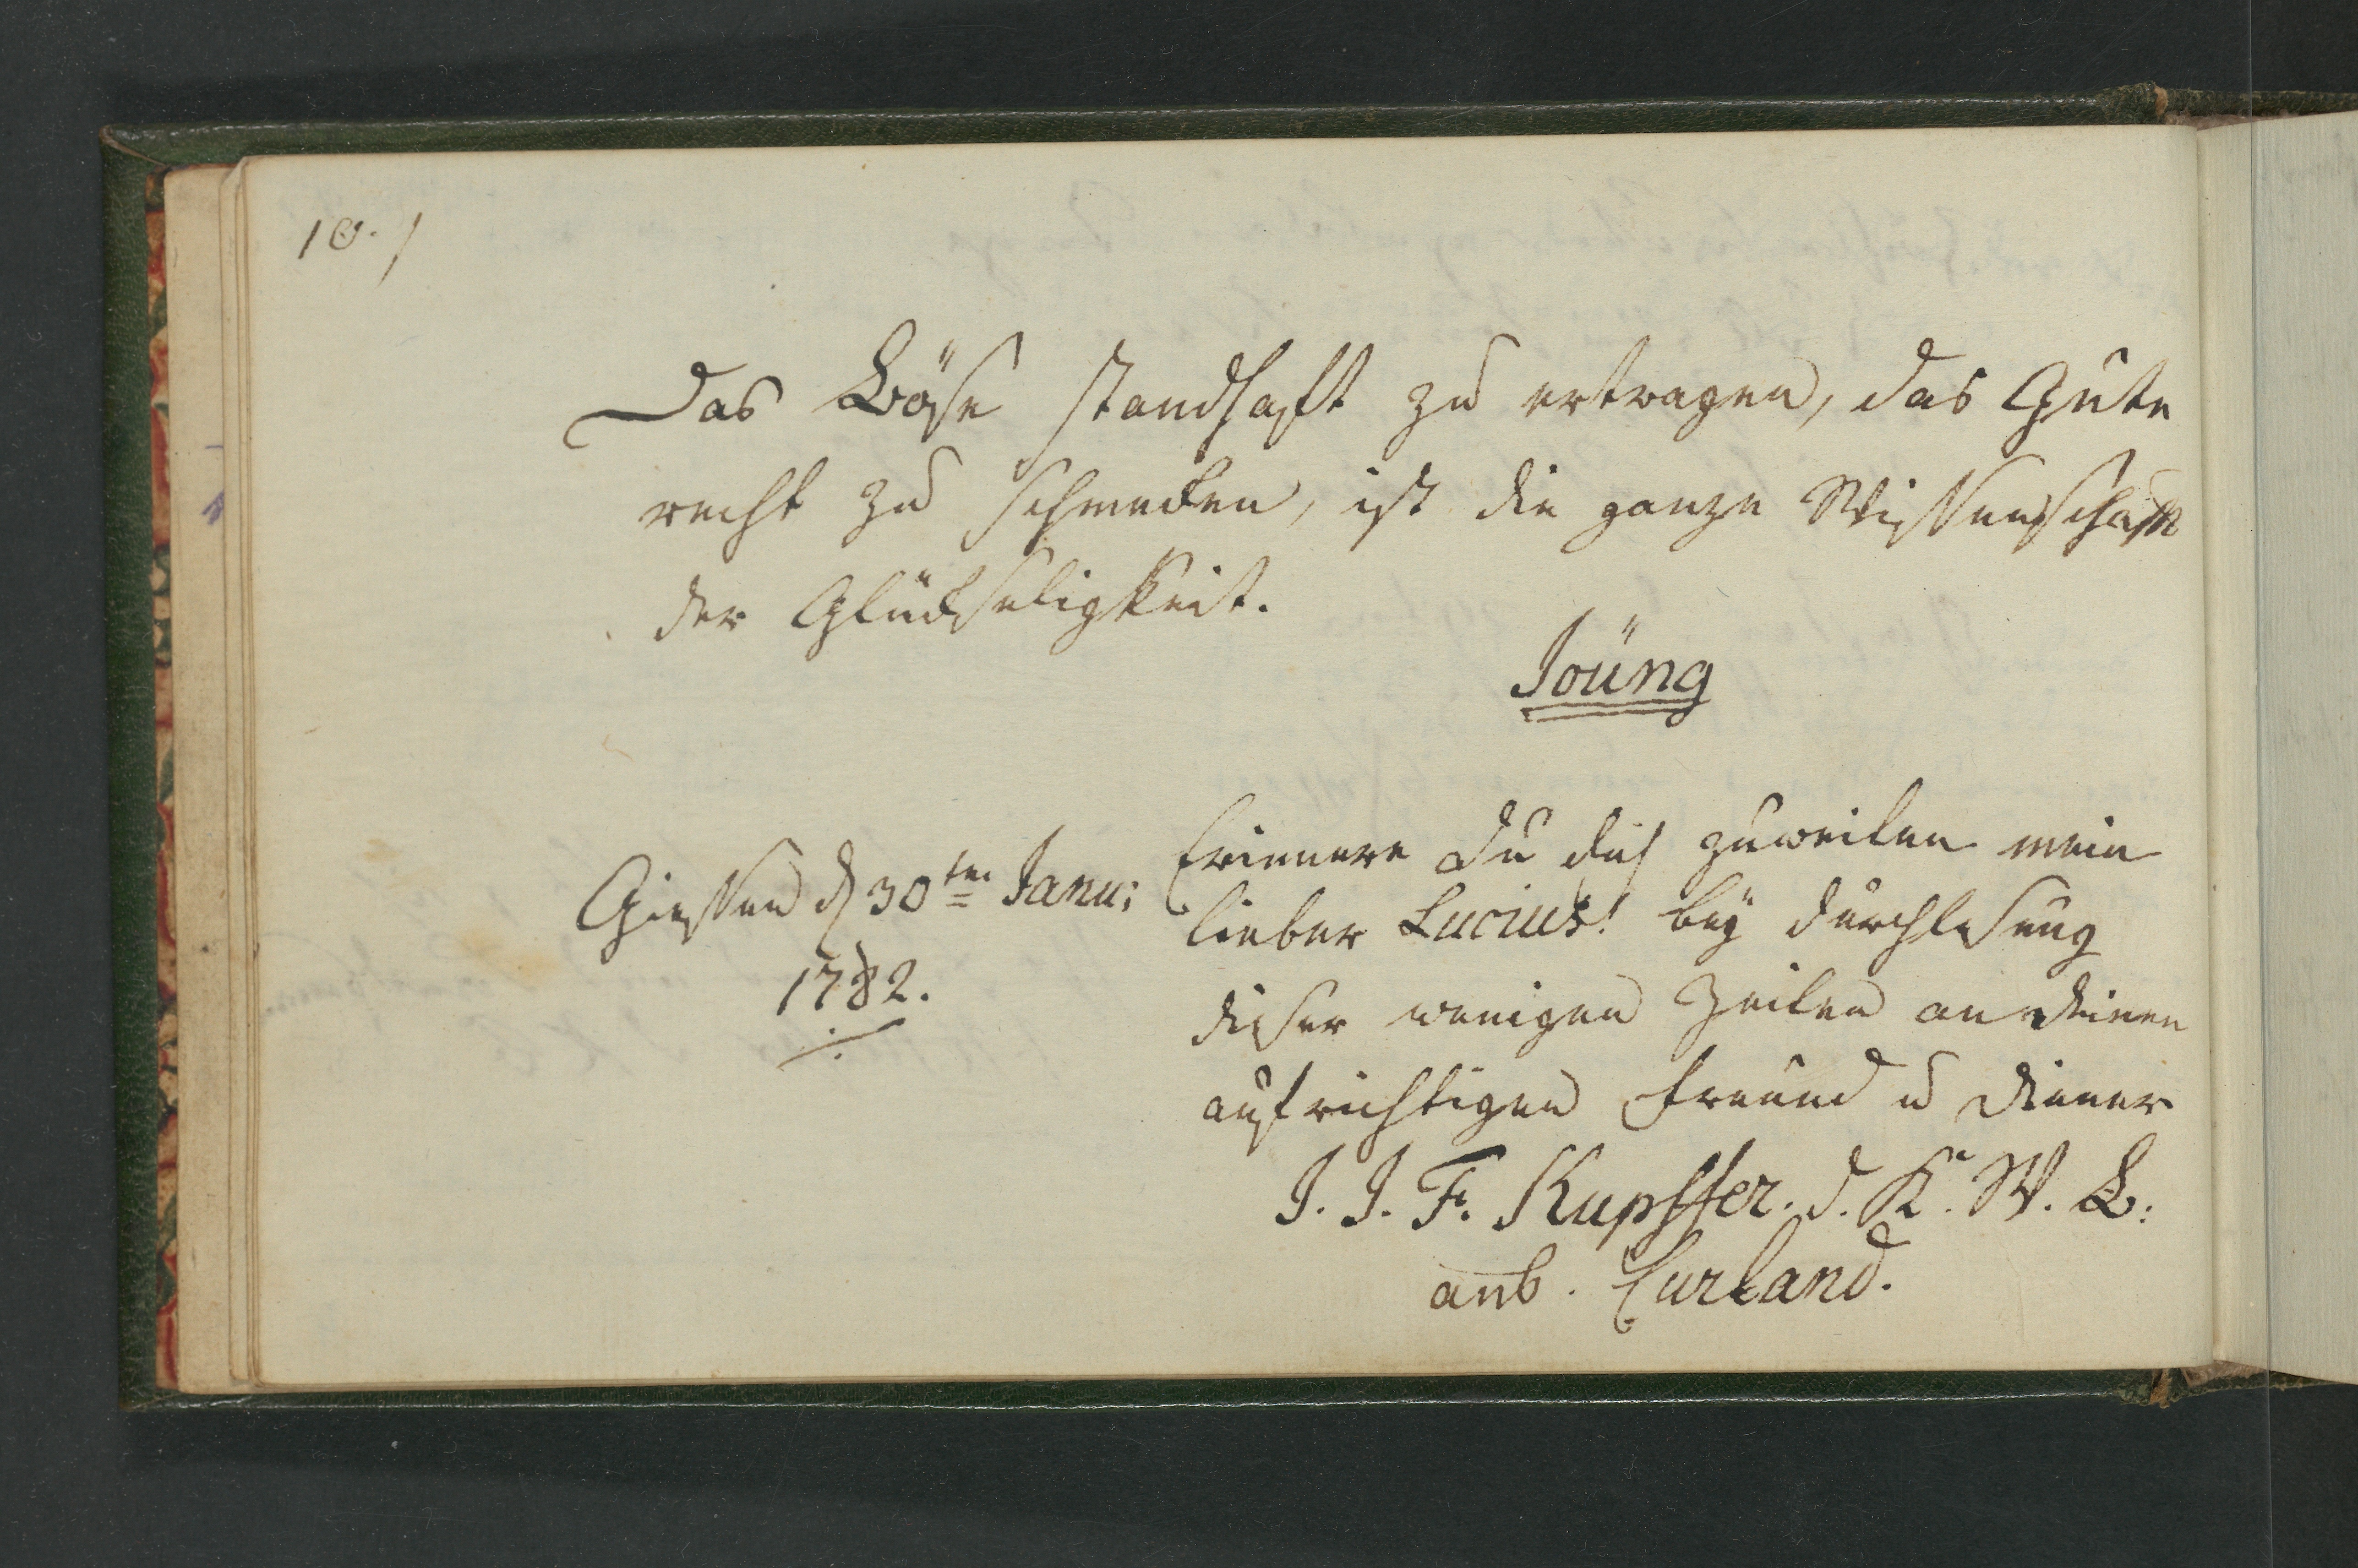 10. /
Das Böse standhaft zu ertragen, das Gute
recht zu schmecken, ist die ganze Wissenschaft
der Glückseligkeit.
Joüng
Giessen d 30ten Janu:
1782.
Erinnere Du dich zuweilen mein
lieber Lucius! bey Durchlesung
dieser wenigen Zeilen an deinen
aufrichtigen Freund u Diener
J. J. F. Kupffer. d. R. W. B:
aus. Curland.